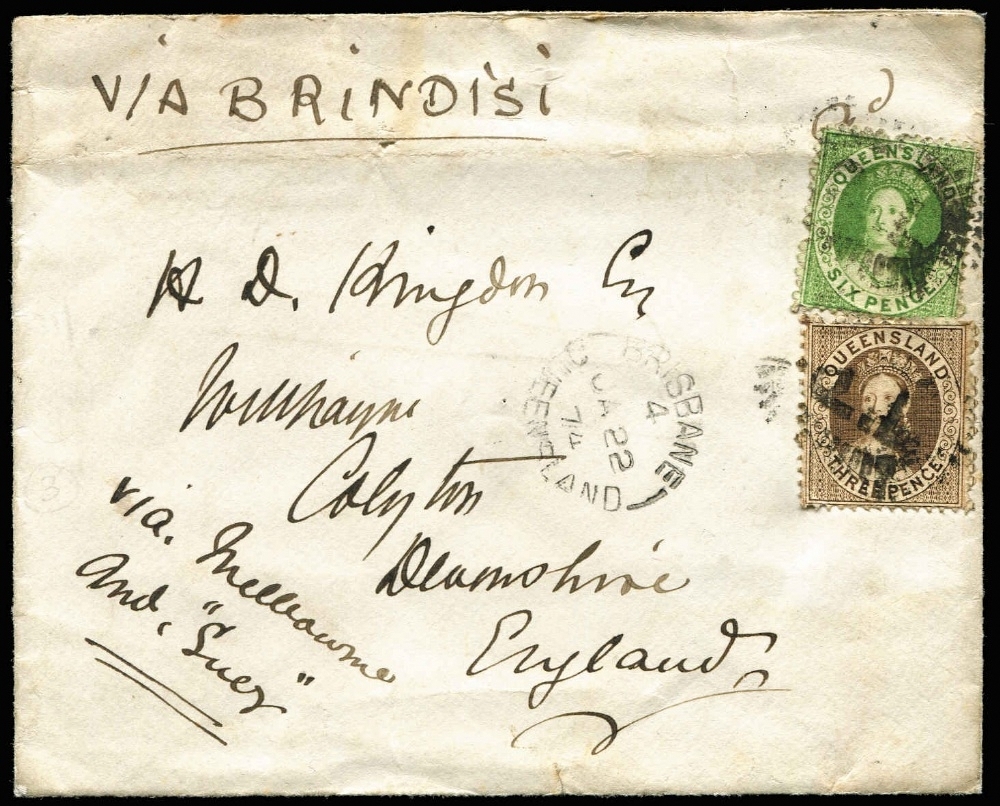 VIA BRINDISI
QUEENSLAND
SIX PENCE
H D. Kingdon Esq
QUEENSLAND
THREE PENCE
BRISBANE
4
JA 22
74
QUEENSLAND
Willhayne
Colyton
Devonshire
England
via. Melbourne
and, "Suez"